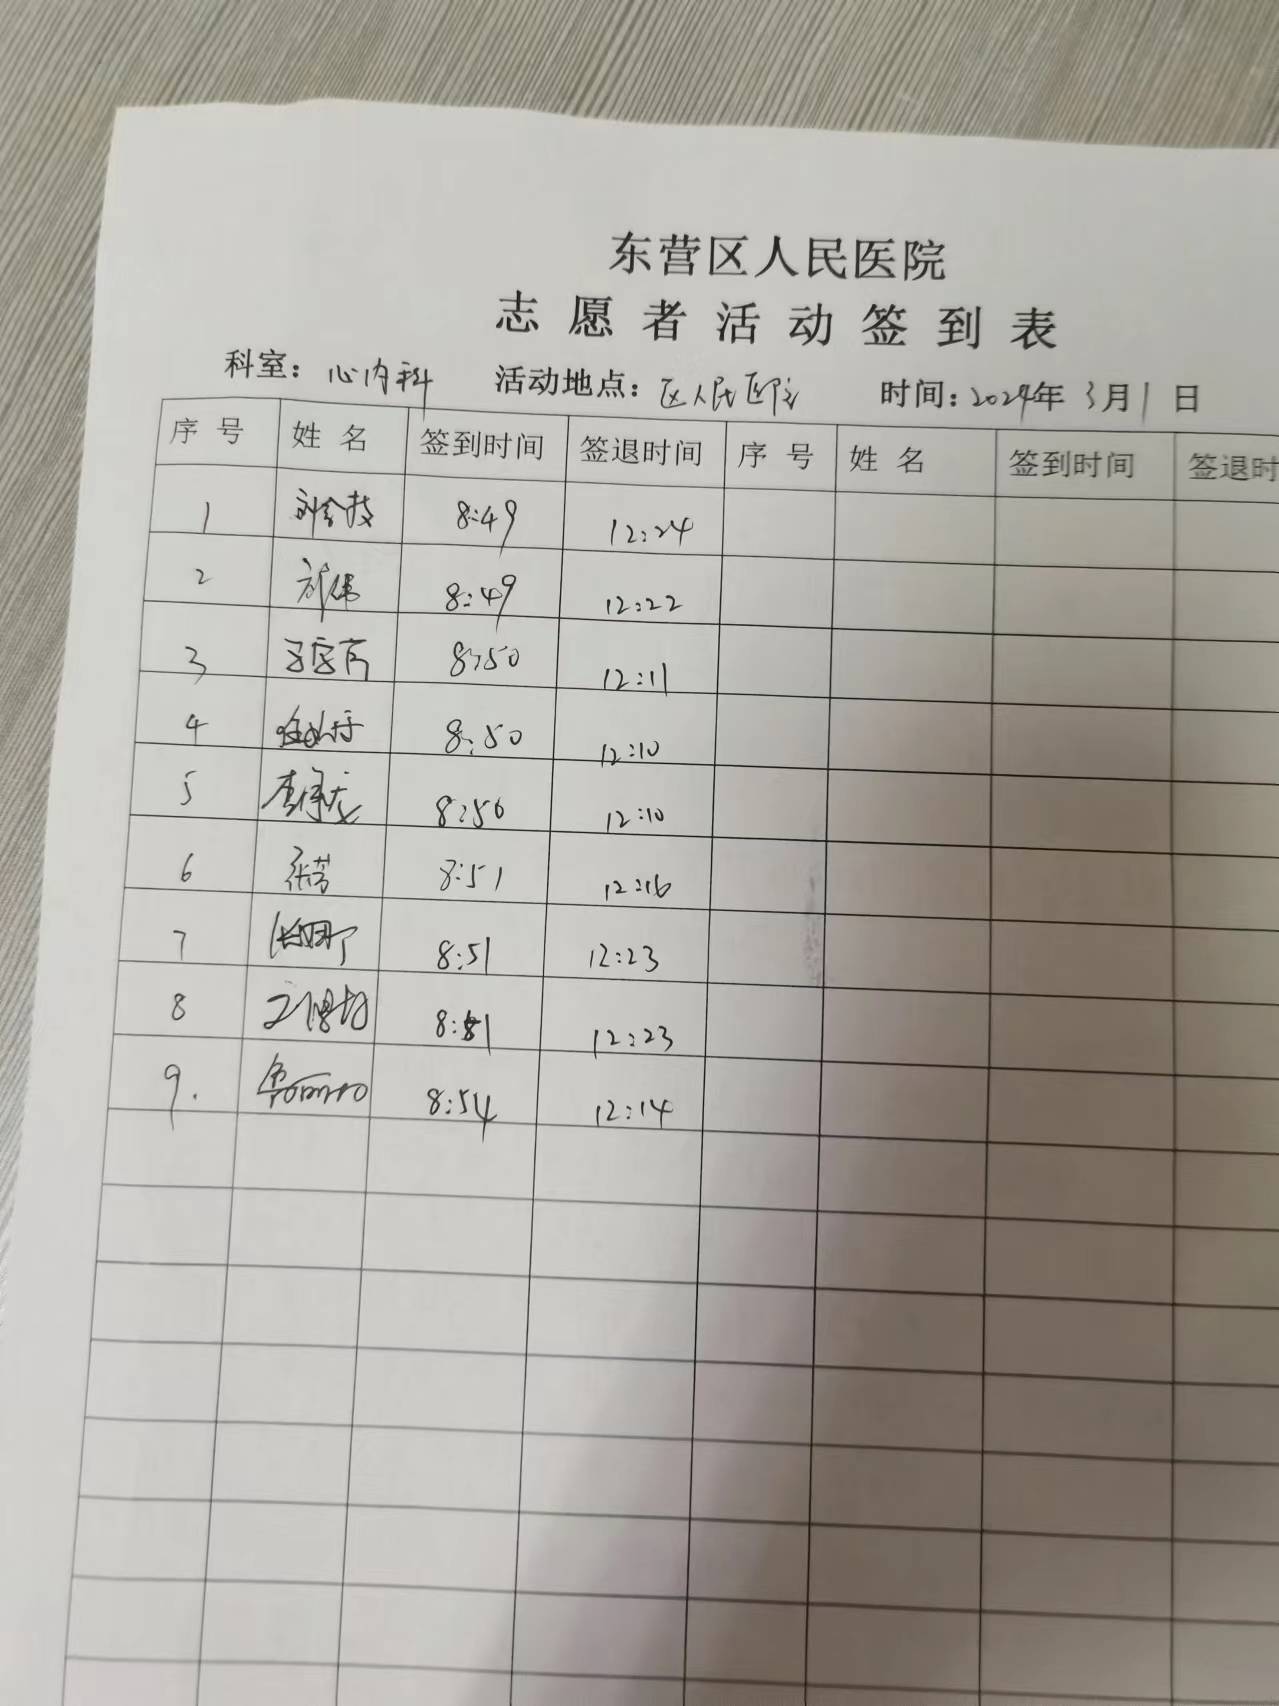 东营区人民医院
志愿者活动签到表
科室：心内科 活动地点：区人民医院 时间：2024年3月1日
序号 姓名 签到时间 签退时间 序号 姓名 签到时间 签退时
1 8:49 12:24
2 8:49 12:22
3 8:50 12:11
4 8:50 12:10
5 8:50 12:10
6 张芳 8:51 12:16
7 8:51 12:23
8 8:51 12:23
9. 8:54 12:14